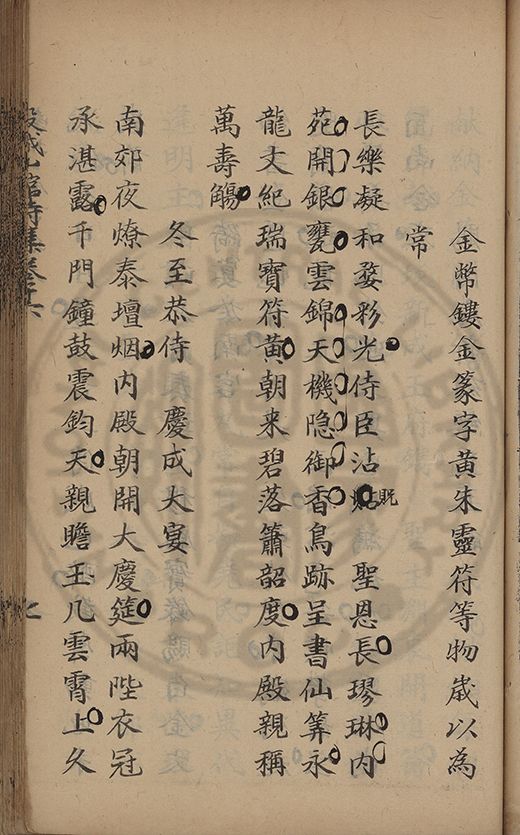 金幣鏤金篆字黃朱靈符等物歲以為
常
長樂凝和婺彩光侍臣沾貺聖恩長璆琳內
苑開銀甕雲錦天機隐御香鳥跡呈書仙筭永
龍文紀瑞寶符黃朝来碧落簫韶度內殿親稱
萬壽觴
冬至恭侍慶成大宴
南郊夜燎泰壇烟内殿朝開大慶筵兩陛衣冠
承湛露千門鐘鼓震鈞天親瞻玉几雲霄上久